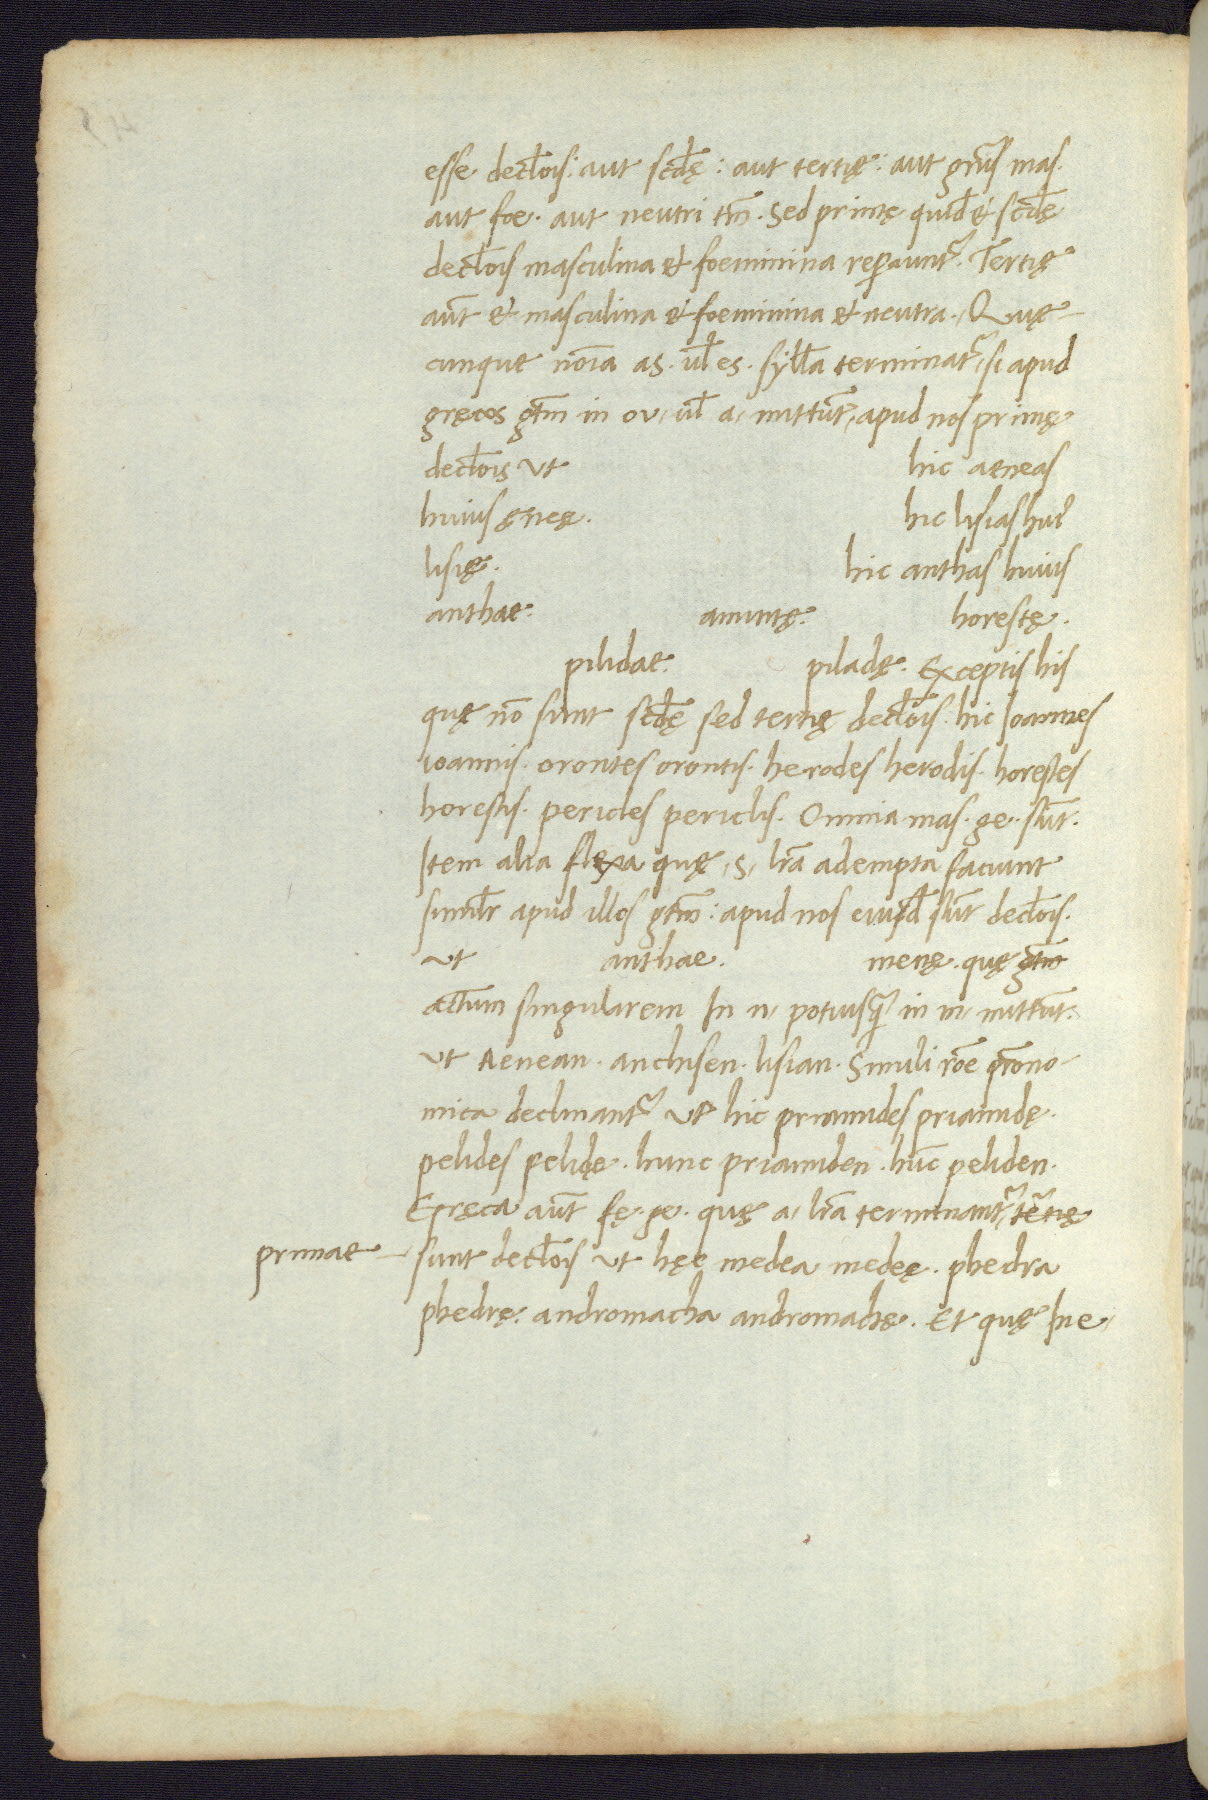 esse decl̄ois: aut scd̄ę: aut tertię: aut gn̄is mas.
aut foe. aut neutri tm̄. Sed primę quid̄ et scd̄ę
decl̄ois masculina et foeminina reperiunt᷑. Tertię
aut̄ et masculina et foeminina et neutra. Quę
cunque nōia as. ul̄ es. syll̄a terminat᷑, si apud
gręcos gtm̄ in ou, ul̄ a, mittūt, apud nos primę
decl̄ois ut hic aeneas
huius ęnęę. hic lisias hui᷑
lisię. hic anthas huius
anthae. amintę. horestę.
pilidae. piladę. Exceptis his
quę nō sunt scd̄ę sed tertię decl̄ois. hic Ioannes
ioannis. orontes orontis. herodes herodis. horestes
horestis. pericles periclis. Omnia mas. ge. sūt.
Item alia flexa quę, s, lr̄a adempta faciunt
simil̄r apud illos gtm̄: apud nos eiusd̄ sūt decl̄ois.
ut anthae. menę. quę gtm̄
actūm singularem In n, potiusq̄ in m, mittūt.
ut Aenean. anchisen. lisian. Simili rōe p̄rono-
mica declinant᷑ ut hic priamides priamidę.
pelides pelidę. hunc priamiden. hūc peliden.
Gręca aut̄ fę. ge. quę a, lr̄a terminant᷑, tertię
primae sunt decl̄ois ut hęc medea medeę. phedra
phedrę. andromacha andromachę. Et quę In e,